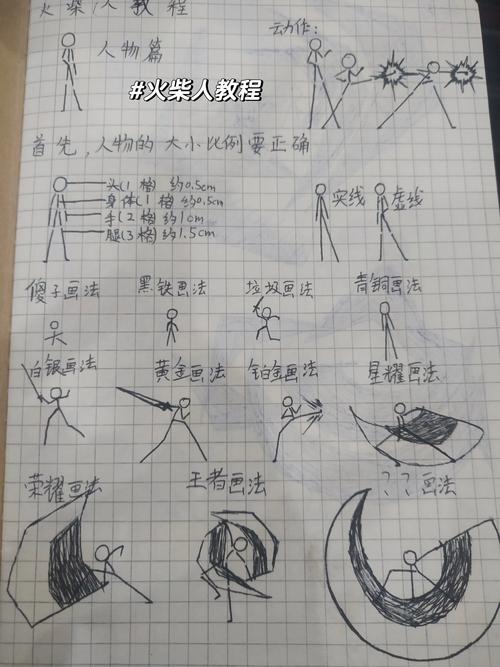 火柴人教程
人物篇
动作:
#火柴人教程
首先,人物的大小比例要正确
头(1格)约0.5cm
身体(1格)约0.5cm
手(2格)约1cm
腿(3格)约1.5cm
实线
虚线
傻子画法
黑铁画法
垃圾画法
青铜画法
白银画法
黄金画法
铂金画法
星耀画法
荣耀画法
王者画法
??画法